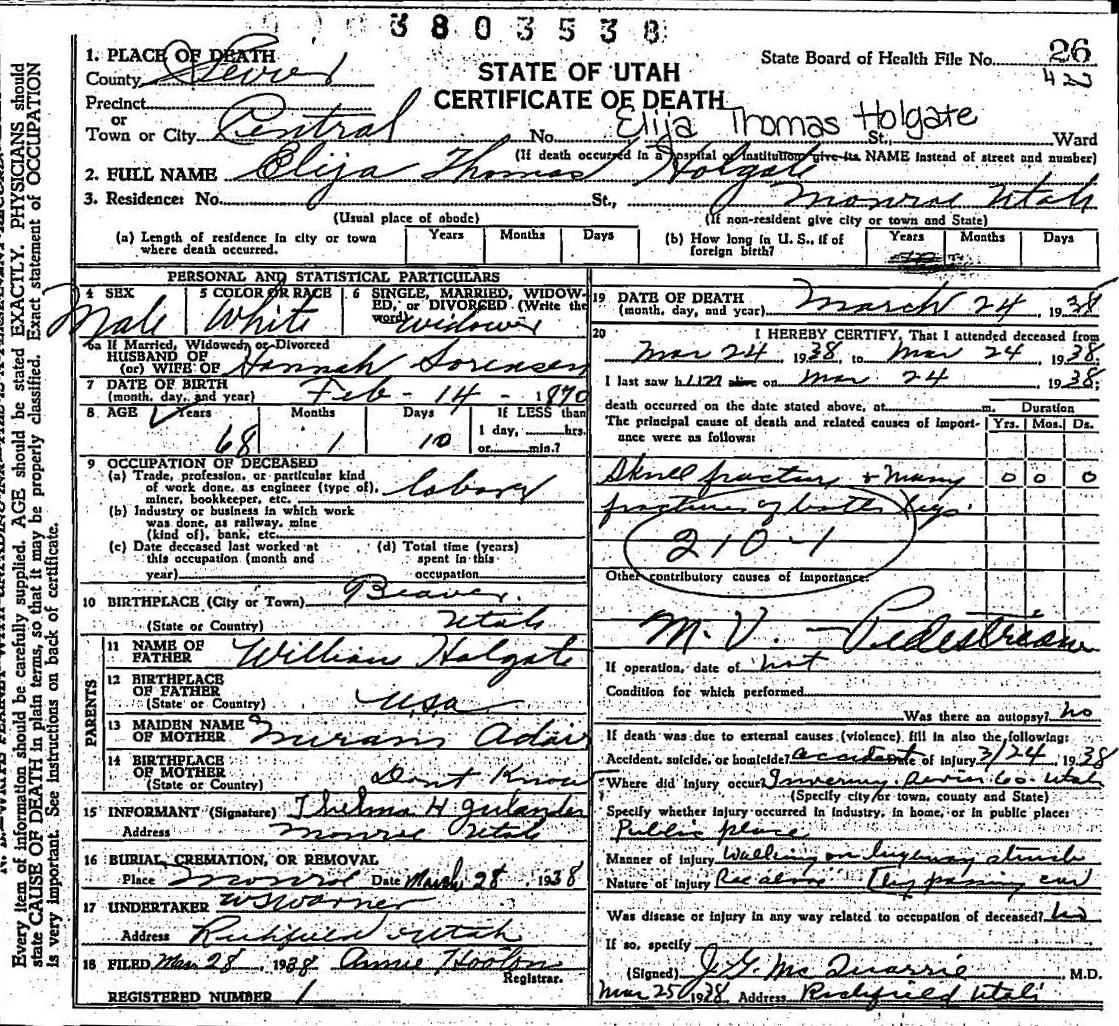 3803538
State Board of Health File No. 26
STATE OF UTAH
CERTIFICATE OF DEATH
1. PLACE OF DEATH
County Sevier
Precinct
or
Town or City Central No. St., Ward
Elija Thomas Holgate
(If death occurred in a hospital or institution, give its NAME instead of street and number)
2. FULL NAME Elija Thomas Holgate
3. Residence: No. St., Monroe Utah
(Usual place of abode) (If non-resident give city or town and State)
(a) Length of residence in city or town where death occurred. Years Months Days
(b) How long in U. S., if of foreign birth? Years Months Days
PERSONAL AND STATISTICAL PARTICULARS
4 SEX Male
5 COLOR OR RACE White
6 SINGLE, MARRIED, WIDOWED, or DIVORCED (Write the word) widower
6a If Married, Widowed, or Divorced
HUSBAND OF
(or) WIFE OF Hannah Sorensen
7 DATE OF BIRTH
(month, day, and year) Feb - 14 - 1870
8 AGE Years Months Days If LESS than
1 day, hrs.
68 1 10 or min.?
9 OCCUPATION OF DECEASED
(a) Trade, profession, or particular kind
of work done, as engineer (type of), laborer
miner, bookkeeper, etc.
(b) Industry or business in which work
was done, as railway, mine
(kind of), bank, etc.
(c) Date deceased last worked at this occupation (month and year)
(d) Total time (years) spent in this occupation
10 BIRTHPLACE (City or Town) Beaver.
(State or Country) Utah
PARENTS
11 NAME OF FATHER William Holgate
12 BIRTHPLACE OF FATHER
(State or Country) U.S.a
13 MAIDEN NAME OF MOTHER Adair
14 BIRTHPLACE OF MOTHER
(State or Country) Dont Know
15 INFORMANT (Signature) Thelma H
Address Monroe Utah
16 BURIAL, CREMATION, OR REMOVAL
Place Monroe Date March 28, 1938
17 UNDERTAKER W S Warner
Address Richfield Utah
18 FILED Mar 28, 1938 Annie
Registrar.
REGISTERED NUMBER 1
19 DATE OF DEATH
(month, day, and year) March 24, 1938
20 I HEREBY CERTIFY, That I attended deceased from
Mar 24 1938, to Mar 24, 1938
I last saw him alive on Mar 24 1938;
death occurred on the date stated above, at m. Duration
The principal cause of death and related causes of importance were as follows: Yrs. Mos. Ds.
Skull fracture & many 0 0 0
fractures of both legs.
210-1
Other contributory causes of importance:
M. V. - Pedestrian
If operation, date of not
Condition for which performed
Was there an autopsy? no
If death was due to external causes (violence) fill in also the following:
Accident, suicide, or homicide? accident Date of injury 3/24, 1938
Where did injury occur? Sevier Co. Utah
(Specify city or town, county and State)
Specify whether injury occurred in industry, in home, or in public place:
Public place
Manner of injury Walking on highway struck
Nature of injury See above by passing car
Was disease or injury in any way related to occupation of deceased? no
If so, specify
(Signed) J. G. McQuarrie, M.D.
Mar 25 1938 Address Richfield Utah
Every item of information should be carefully supplied. AGE should be stated EXACTLY. PHYSICIANS should
state CAUSE OF DEATH in plain terms, so that it may be properly classified. Exact statement of OCCUPATION
is very important. See instructions on back of certificate.